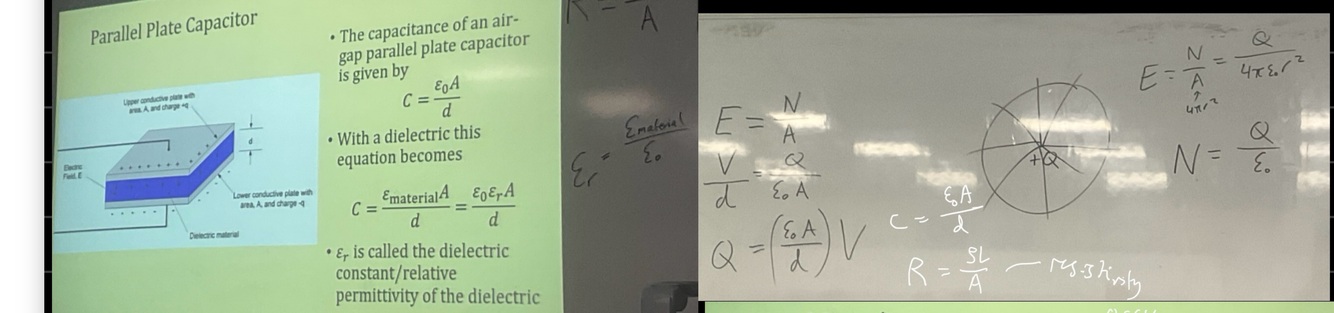 Parallel Plate Capacitor
Upper conductive plate with
area, A, and charge +q
d
Electric
Field, E
Lower conductive plate with
area, A, and charge -q
Dielectric material
• The capacitance of an air-
gap parallel plate capacitor
is given by
C = ε₀A/d
• With a dielectric this
equation becomes
C = ε_material A/d = ε₀ε_r A/d
• ε_r is called the dielectric
constant/relative
permittivity of the dielectric
R = /A
ε_r = ε_material/ε₀
E = N/A
V/d = Q/ε₀A
Q = (ε₀A/d) V
+Q
C = ε₀A/d
R = ρL/A
E = N/A = Q/4πε₀r²
↑
4πr²
N = Q/ε₀